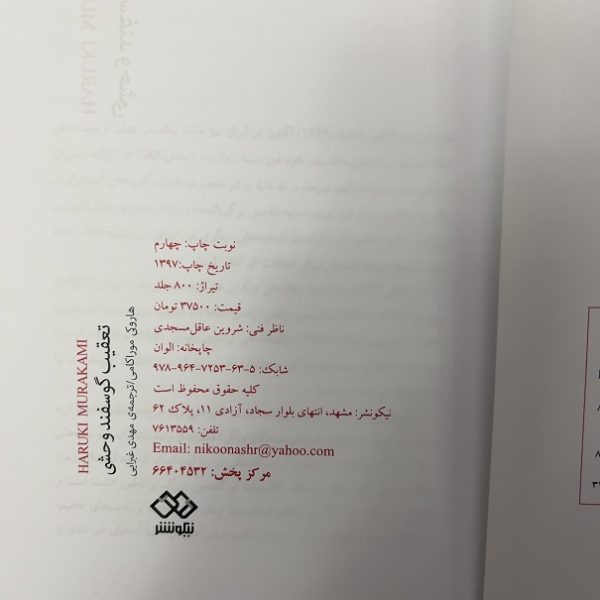 HARUKI MURAKAMI
تعقیب گوسفند وحشی
هاروکی موراکامی/ترجمه‌ی مهدی غبرایی
نوبت چاپ: چهارم
تاریخ چاپ:۱۳۹۷
تیراژ: ۸۰۰ جلد
قیمت: ۳۷۵۰۰ تومان
ناظر فنی: شروین عاقل‌مسجدی
چاپخانه: الوان
شابک: ۵-۶۳-۷۲۵۳-۹۶۴-۹۷۸
کلیه حقوق محفوظ است
نیکونشر: مشهد، انتهای بلوار سجاد، آزادی ۱۱، پلاک ۶۲
تلفن: ۷۶۱۳۵۵۹
Email: nikoonashr@yahoo.com
مرکز پخش: ۶۶۴۰۴۵۳۲
نیکونشر